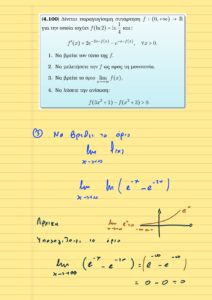 (4.100) Δίνεται παραγωγίσιμη συνάρτηση f : (0, +∞) → ℝ
για την οποία ισχύει f(ln 2) = ln 1/4 και :
f′(x) + 2e^{-2x-f(x)} = e^{-x-f(x)}, ∀x > 0.
1. Να βρείτε τον τύπο της f.
2. Να μελετήσετε την f ως προς τη μονοτονία.
3. Να βρείτε το όριο lim_{x→+∞} f(x).
4. Να λύσετε την ανίσωση:
f(3x² + 1) − f(x² + 3) > 0
③ Να βρεθεί το όριο
lim_{x→+∞} f(x)
lim_{x→+∞} ln(e^{-x} − e^{-2x})
Αρχικά
Υπολογίζουμε το όριο
lim_{x→+∞} (e^{-x} − e^{-2x}) = (e^{-∞} − e^{-∞})
= 0 − 0 = 0